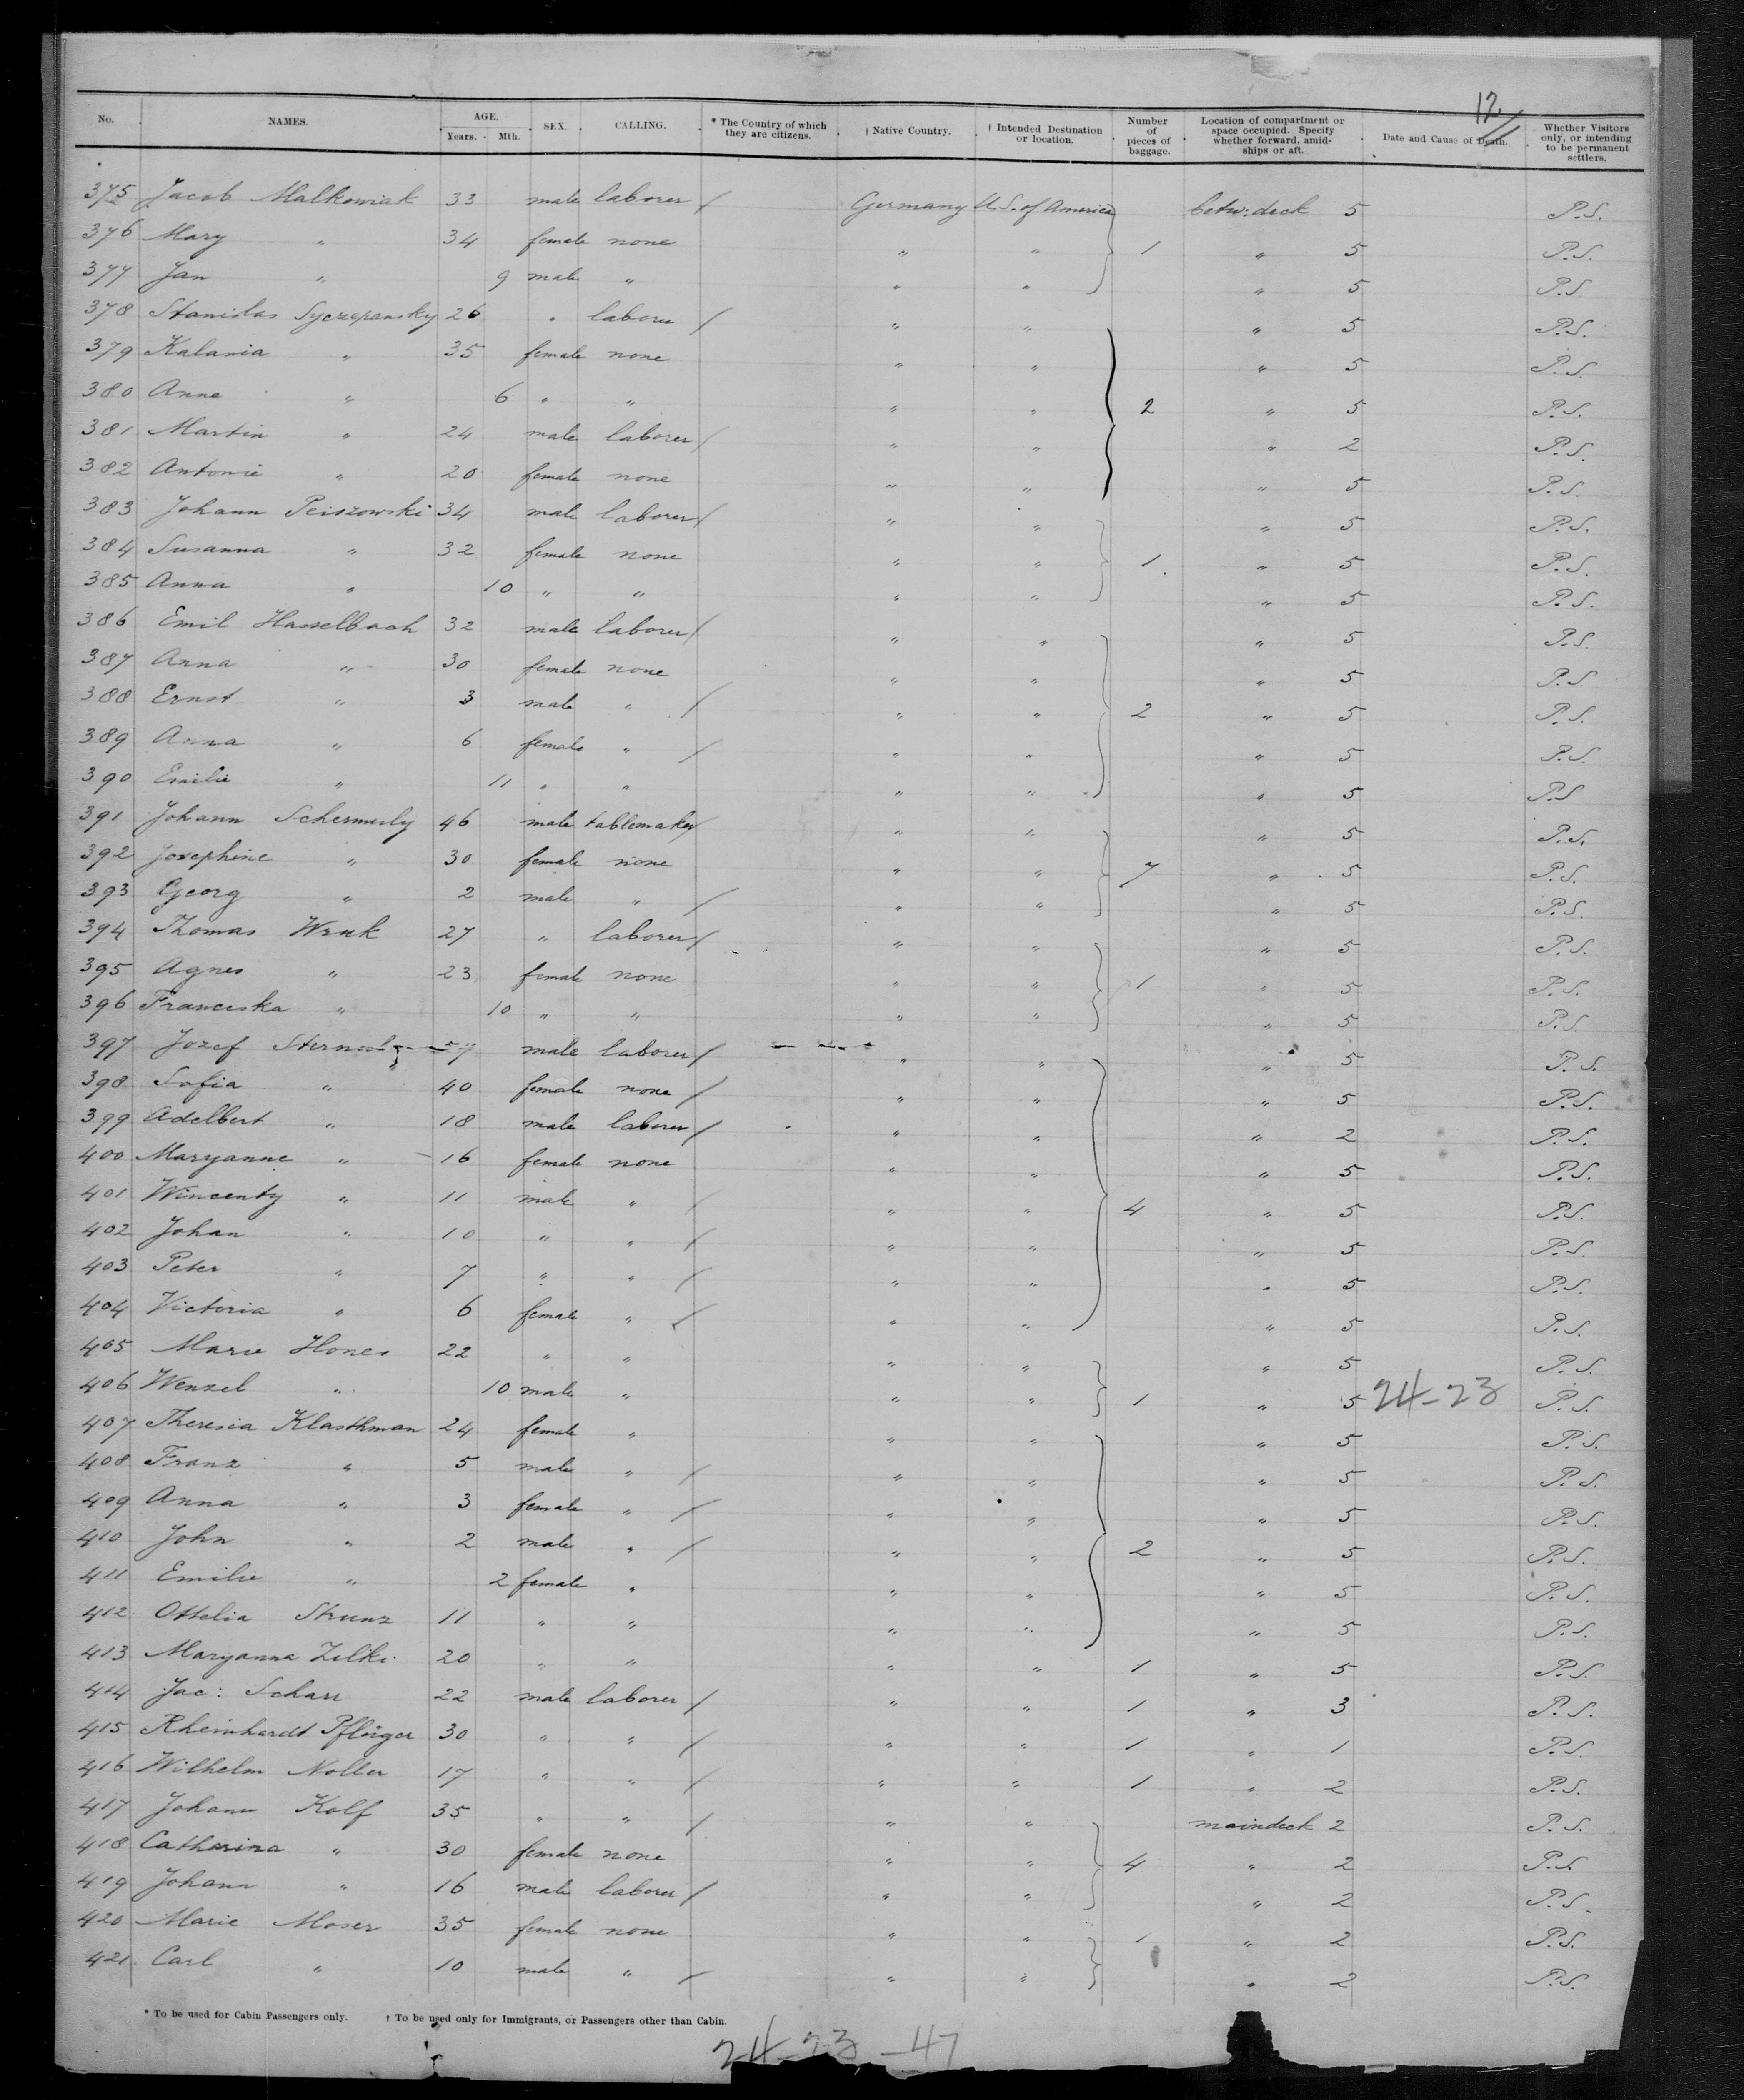 12.
No. NAMES. AGE. Years. Mth. SEX. CALLING. * The Country of which they are citizens. † Native Country. † Intended Destination or location. Number of pieces of baggage. Location of compartment or space occupied. Specify whether forward, amidships or aft. Date and Cause of Death. Whether Visitors only, or intending to be permanent settlers.
375 Jacob Malkowiak 33 male laborer / Germany U.S. of America betw: deck 5 P.S.
376 Mary " 34 female none " " 1 " 5 P.S.
377 Jan " 9 male " " " " 5 P.S.
378 Stanislas Syczepansky 26 " laborer / " " " 5 P.S.
379 Kalania " 35 female none " " " 5 P.S.
380 Anna " 6 " " " " 2 " 5 P.S.
381 Martin " 24 male laborer / " " " 2 P.S.
382 Antonie " 20 female none " " " 5 P.S.
383 Johann Peiszowski 34 male laborer / " " " 5 P.S.
384 Susanna " 32 female none " " 1 " 5 P.S.
385 Anna " 10 " " " " " 5 P.S.
386 Emil Hasselbach 32 male laborer / " " " 5 P.S.
387 Anna " 30 female none " " " 5 P.S.
388 Ernst " 3 male " / " " 2 " 5 P.S.
389 Anna " 6 female " / " " " 5 P.S.
390 Emilie " 11 " " " " " 5 P.S
391 Johann Schermuly 46 male tablemaker / " " " 5 P.S.
392 Josephine " 30 female none " " 7 " 5 P.S.
393 Georg " 2 male " / " " " 5 P.S.
394 Thomas Wruk 27 " laborer / " " " 5 P.S.
395 Agnes " 23 female none " " 1 " 5 P.S.
396 Franceska " 10 " " " " " 5 P.S.
397 Jozef 57 male laborer / " " " 5 P.S.
398 Sofia " 40 female none / " " " 5 P.S.
399 Adelbert " 18 male laborer / " " " 2 P.S.
400 Maryanne " 16 female none " " " 5 P.S.
401 Wincenty " 11 male " / " " 4 " 5 P.S.
402 Johan " 10 " " / " " " 5 P.S.
403 Peter " 7 " " / " " " 5 P.S.
404 Victoria " 6 female " / " " " 5 P.S.
405 Marie Hones 22 " " " " " 5 P.S.
406 Wenzel " 10 male " " " 1 " 5 24-23 P.S.
407 Theresia Klasthman 24 female " " " " 5 P.S.
408 Franz " 5 male " / " " " 5 P.S.
409 Anna " 3 female " / " " " 5 P.S.
410 John " 2 male " / " " 2 " 5 P.S.
411 Emilie " 2 female " " " " 5 P.S.
412 Ottelia Strunz 11 " " " " " 5 P.S.
413 Maryanna Zelki 20 " " " " 1 " 5 P.S.
414 Jac: Scharr 22 male laborer / " " 1 " 3 P.S.
415 Rheinhardt Pflüger 30 " " / " " 1 " 1 P.S.
416 Wilhelm Noller 17 " " / " " 1 " 2 P.S.
417 Johann Kolf 35 " " / " " maindeck 2 P.S.
418 Catharina " 30 female none " " 4 " 2 P.S.
419 Johann " 16 male laborer / " " " 2 P.S.
420 Marie Moser 35 female none " " 1 " 2 P.S.
421. Carl " 10 male " / " " " 2 P.S.
* To be used for Cabin Passengers only. † To be used only for Immigrants, or Passengers other than Cabin.
24-23-47